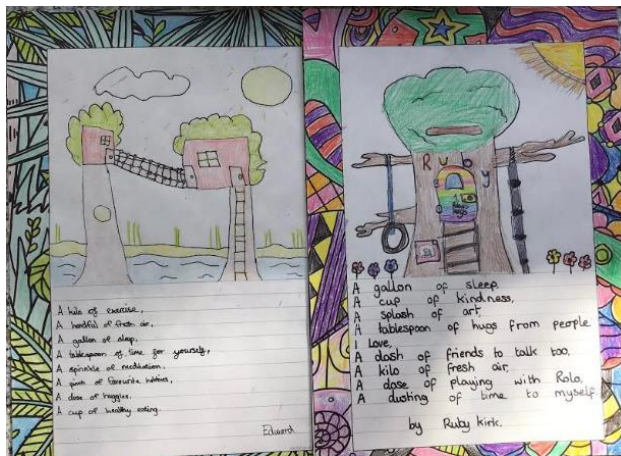 A kilo of exercise,
A handful of fresh air,
A gallon of sleep,
A tablespoon of time for yourself,
A sprinkle of meditation,
A pinch of favourite hobbies,
A dose of huggles,
A cup of healthy eating.
Edward
Ruby
A gallon of sleep.
A cup of kindness,
A splash of art,
A tablespoon of hugs from people
I love,
A dash of friends to talk too,
A kilo of fresh air,
A dose of playing with Rolo,
A dusting of time to myself
by Ruby Kirk.